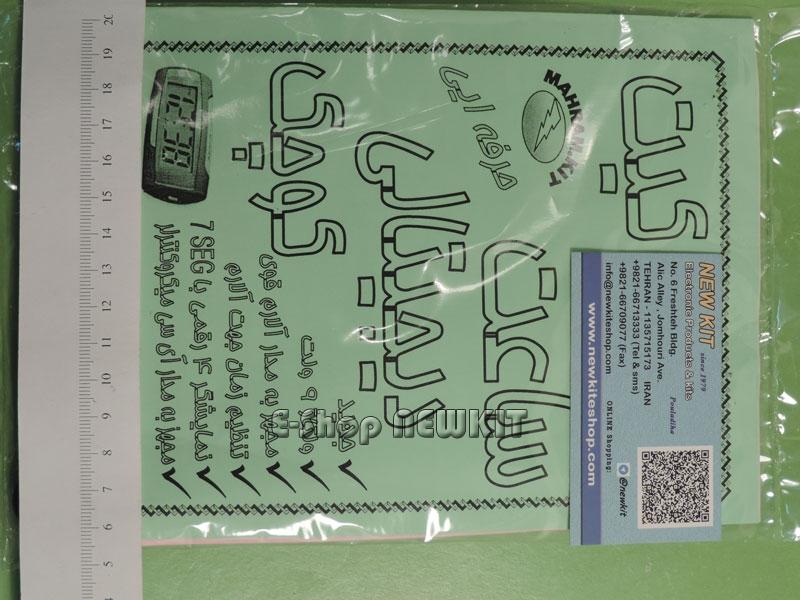 کیت
MAHRAN.KIT
حرفه ایی
ساعت
دیجیتالی
کوچک
جدید
ولتاژ ۹ ولت
مجهز به مدار آلارم قوی
تنظیم زمان جهت آلارم
نمایشگر ۴ رقمی با 7 SEG
مجهز به مدار آی سی میکروکنترلر
NEW KIT since 1979
Electronic Products & kits
Pouladiha
No. 6 Freshteh Bldg.
Alic Alley , Jomhouri Ave.
TEHRAN - 1135715173 IRAN
+9821-66713333 (Tel & sms)
+9821-66709077 (Fax)
info@newkiteshop.com
ONLINE Shopping:
@newkit
www.newkiteshop.com
E-Shop NEWKIT
20
19
18
17
16
15
14
13
12
11
10
9
8
7
6
5